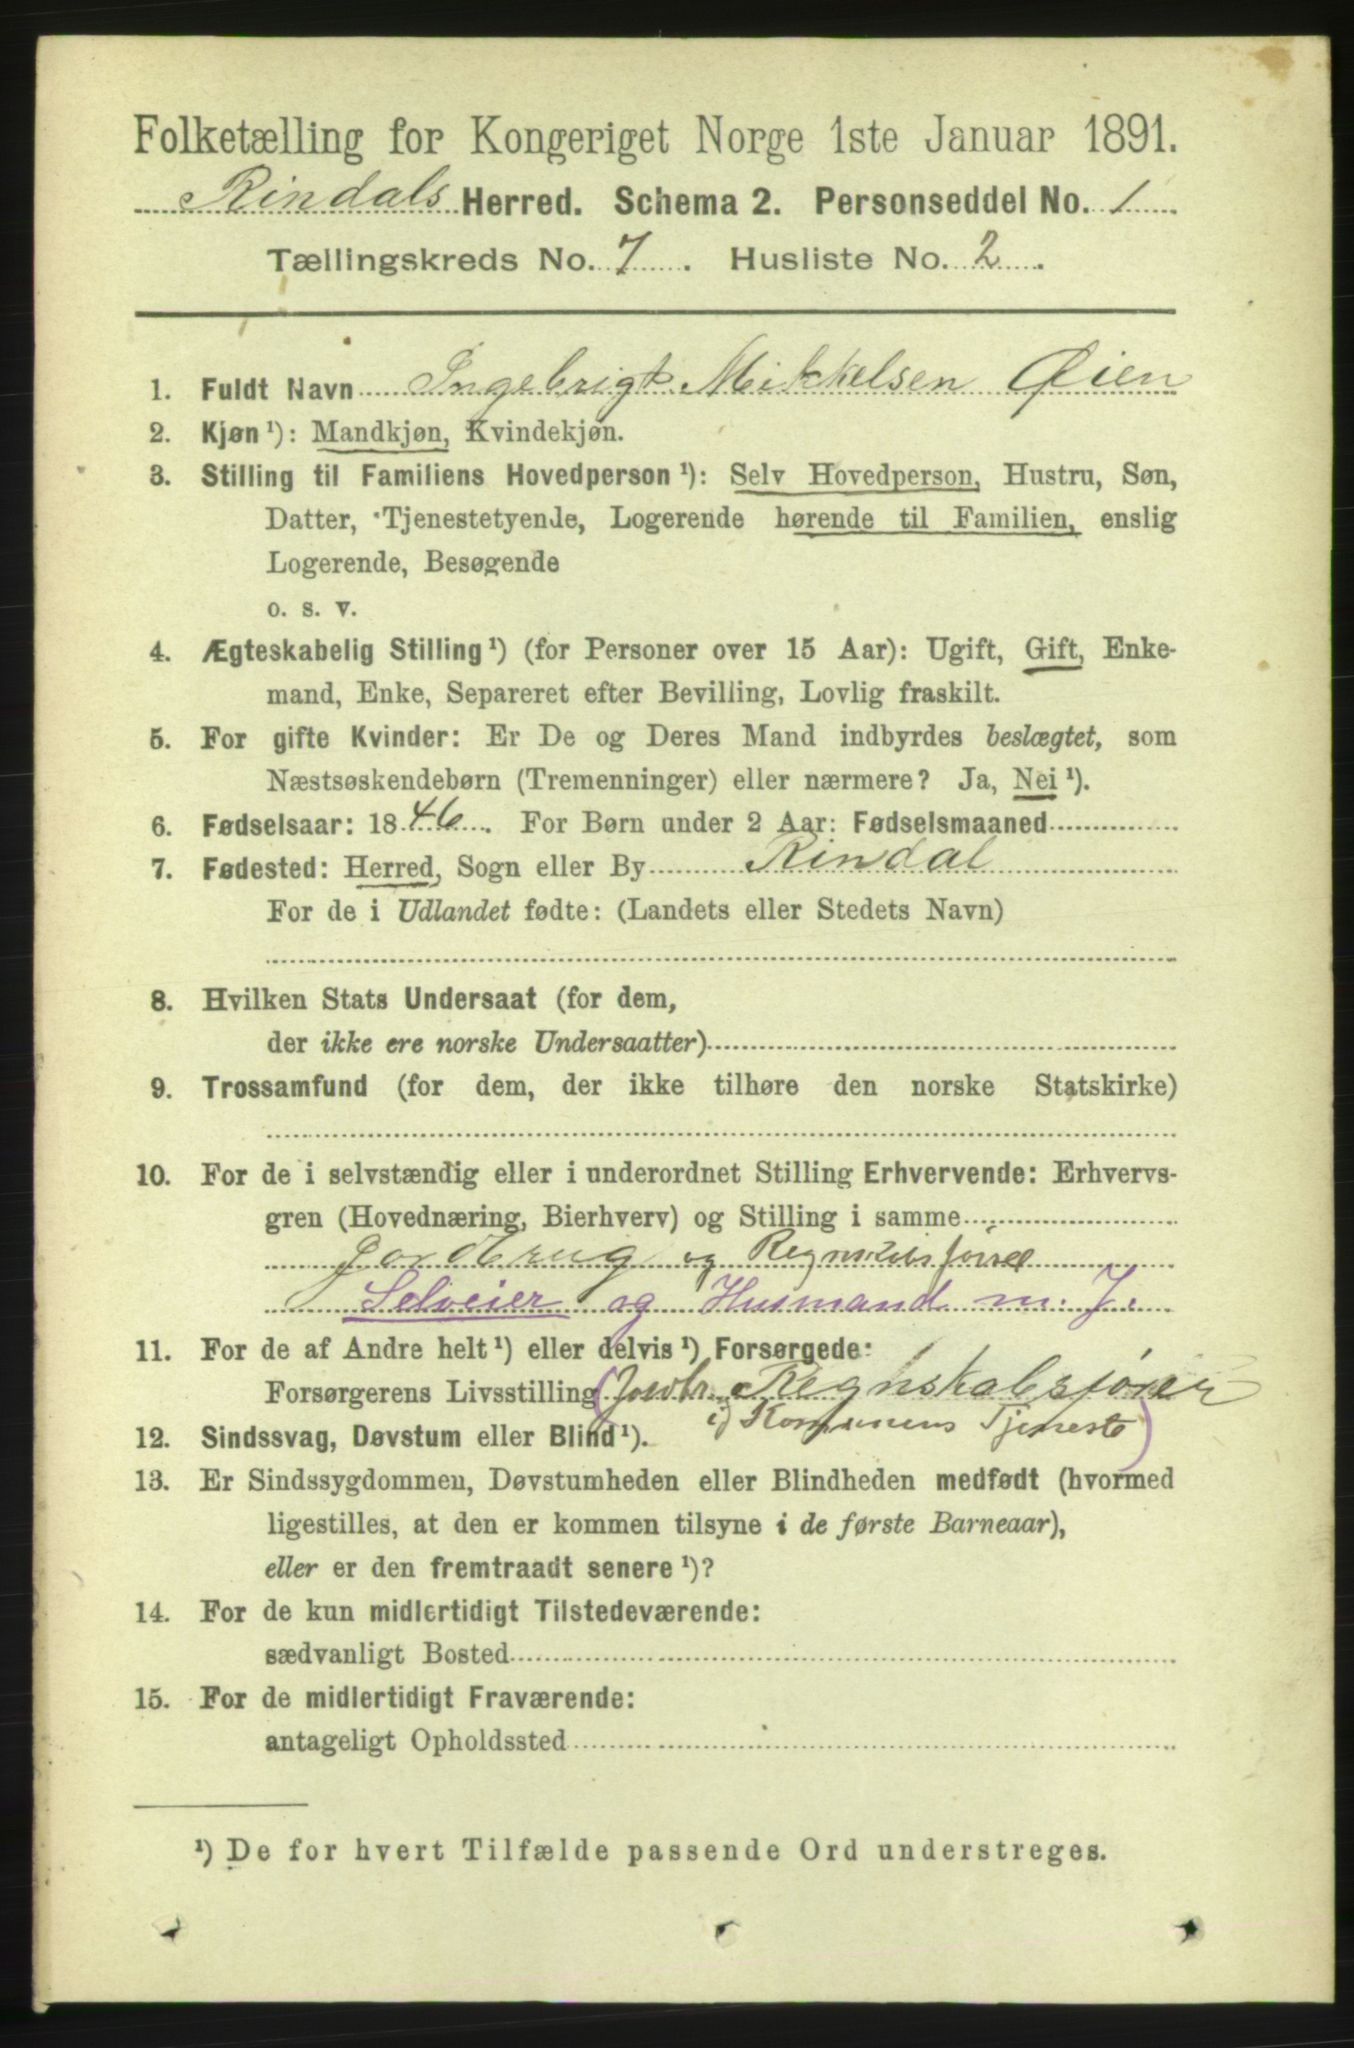 Folketælling for Kongeriget Norge 1ste Januar 1891.
Rindals Herred. Schema 2. Personseddel No. 1
Tællingskreds No. 7. Husliste No. 2.
1. Fuldt Navn Ingebrigt Mikkelsen Øien
2. Kjøn ¹): Mandkjøn, Kvindekjøn.
3. Stilling til Familiens Hovedperson ¹): Selv Hovedperson, Hustru, Søn,
Datter, Tjenestetyende, Logerende hørende til Familien, enslig
Logerende, Besøgende
o. s. v.
4. Ægteskabelig Stilling ¹) (for Personer over 15 Aar): Ugift, Gift, Enke-
mand, Enke, Separeret efter Bevilling, Lovlig fraskilt.
5. For gifte Kvinder: Er De og Deres Mand indbyrdes beslægtet, som
Næstsøskendebørn (Tremenninger) eller nærmere? Ja, Nei ¹).
6. Fødselsaar: 1846. For Børn under 2 Aar: Fødselsmaaned
7. Fødested: Herred, Sogn eller By Rindal
For de i Udlandet fødte: (Landets eller Stedets Navn)
8. Hvilken Stats Undersaat (for dem,
der ikke ere norske Undersaatter)
9. Trossamfund (for dem, der ikke tilhøre den norske Statskirke)
10. For de i selvstændig eller i underordnet Stilling Erhvervende: Erhvervs-
gren (Hovednæring, Bierhverv) og Stilling i samme
Jordbrug og Regnskabsfører
Selveier og Husmand m. J.
11. For de af Andre helt ¹) eller delvis ¹) Forsørgede:
Forsørgerens Livsstilling (Jordbr. Regnskabsfører
i Kommunens Tjeneste)
12. Sindssvag, Døvstum eller Blind ¹).
13. Er Sindssygdommen, Døvstumheden eller Blindheden medfødt (hvormed
ligestilles, at den er kommen tilsyne i de første Barneaar),
eller er den fremtraadt senere ¹)?
14. For de kun midlertidigt Tilstedeværende:
sædvanligt Bosted
15. For de midlertidigt Fraværende:
antageligt Opholdssted
¹) De for hvert Tilfælde passende Ord understreges.